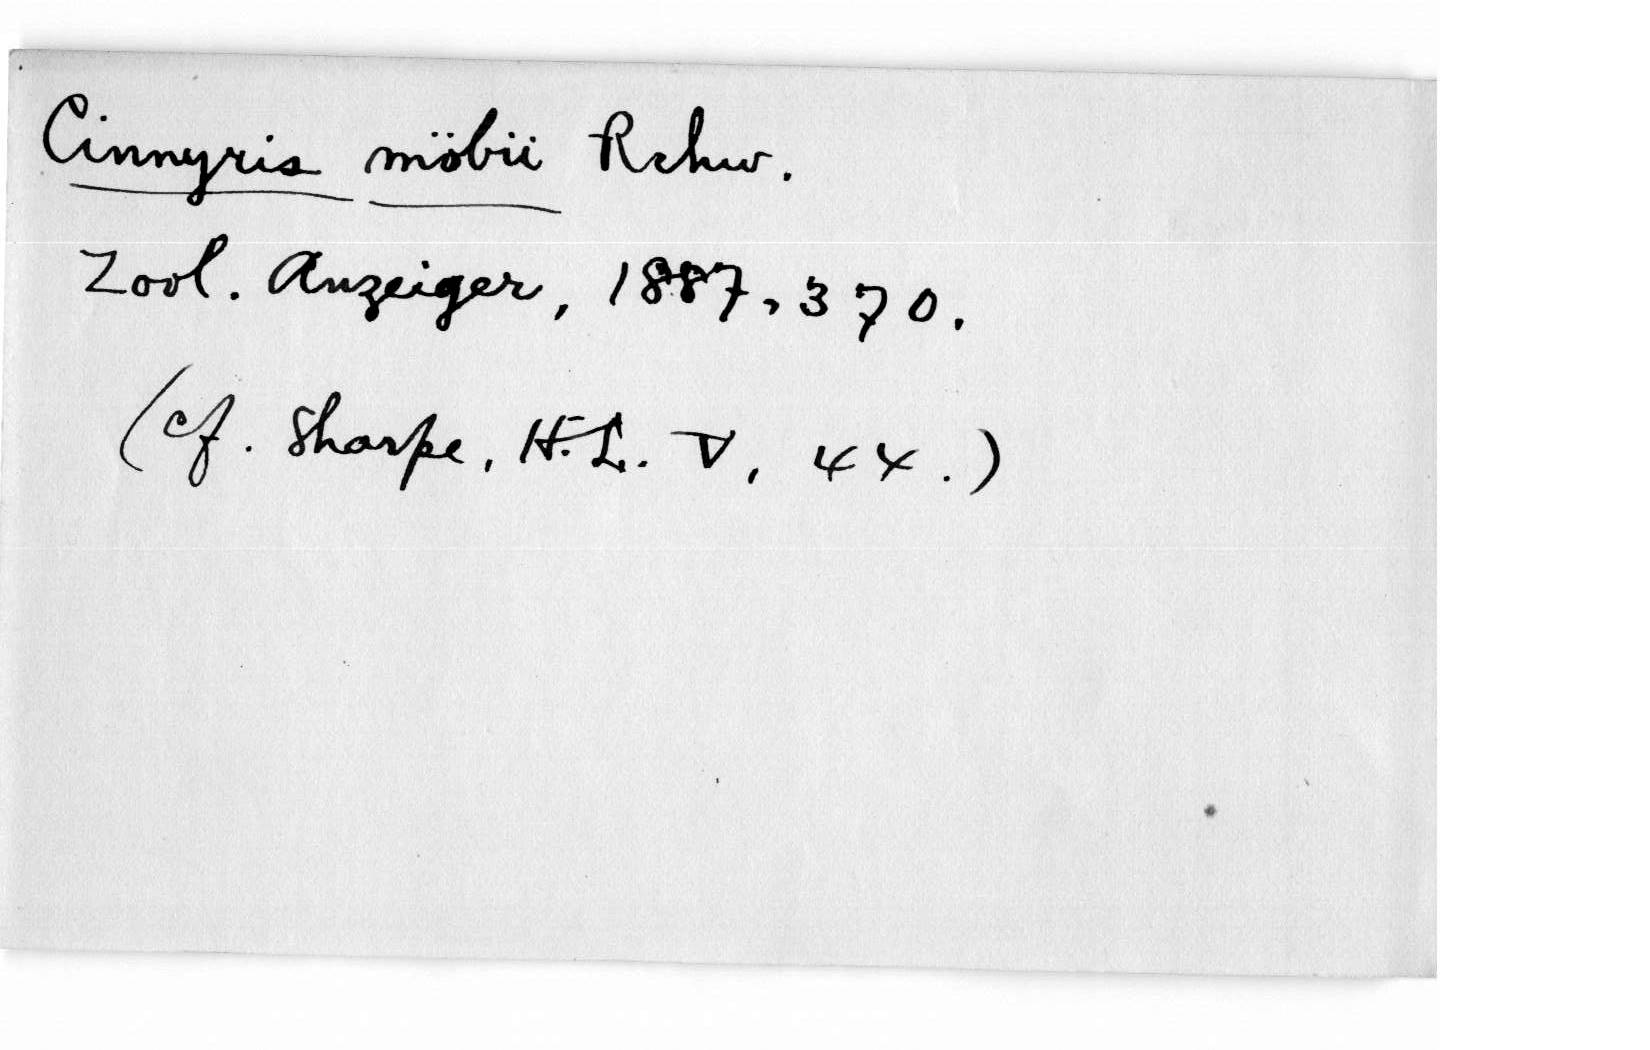 Cinnyris möbii Rchw.
Zool. Anzeiger, 1887, 370.
(cf. Sharpe, H.L. V, 44.)